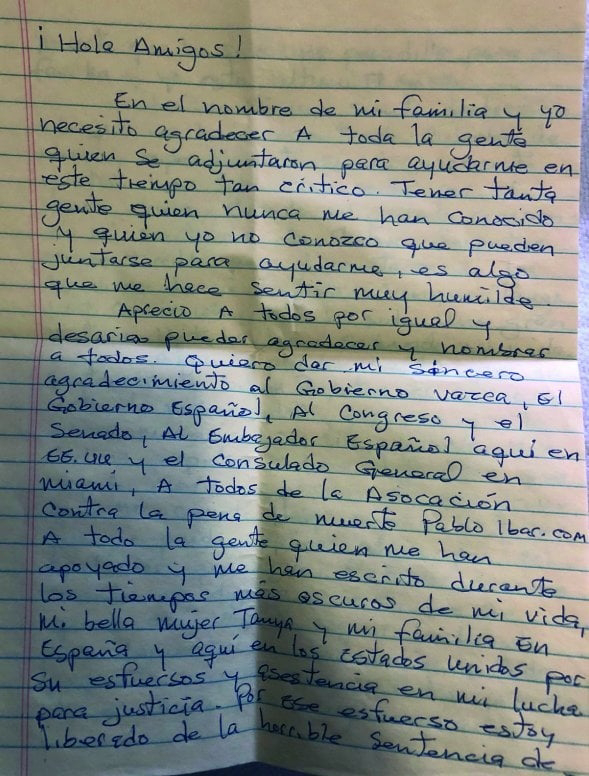 ¡Hola Amigos!
En el nombre de mi familia y yo
necesito agradecer A toda la gente
quien se adjuntaron para ayudarme en
este tiempo tan crítico. Tener tanta
gente quien nunca me han conocido
y quien yo no conozco que pueden
juntarse para ayudarme, es algo
que me hace sentir muy humilde.
Aprecio A todos por igual y
desaria pueder agradecer y nombrar
a todos. Quiero dar mi sincero
agradecimiento al Gobierno vazca, El
Gobierno Español, Al Congreso y el
Senado, Al Embajador Español aquí en
EE.UU y el Consulado General en
miami, A todos de la Asocación
contra la pena de muerte Pablo Ibar.com
A todo la gente quien me han
apoyado y me han escrito durante
los tiempos más oscuros de mi vida,
Mi bella mujer Tanya y mi familia En
España y aquí en los Estados Unidos por
su esfuersos y asestencia en mi lucha
para justicia. Por ese esfuerso estoy
liberado de la horrible sentencia de